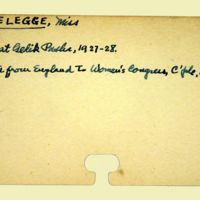 ELEGGE, Miss
at Gelik Pasha, 1927-28.
from England To Women's Congress, C'ple,